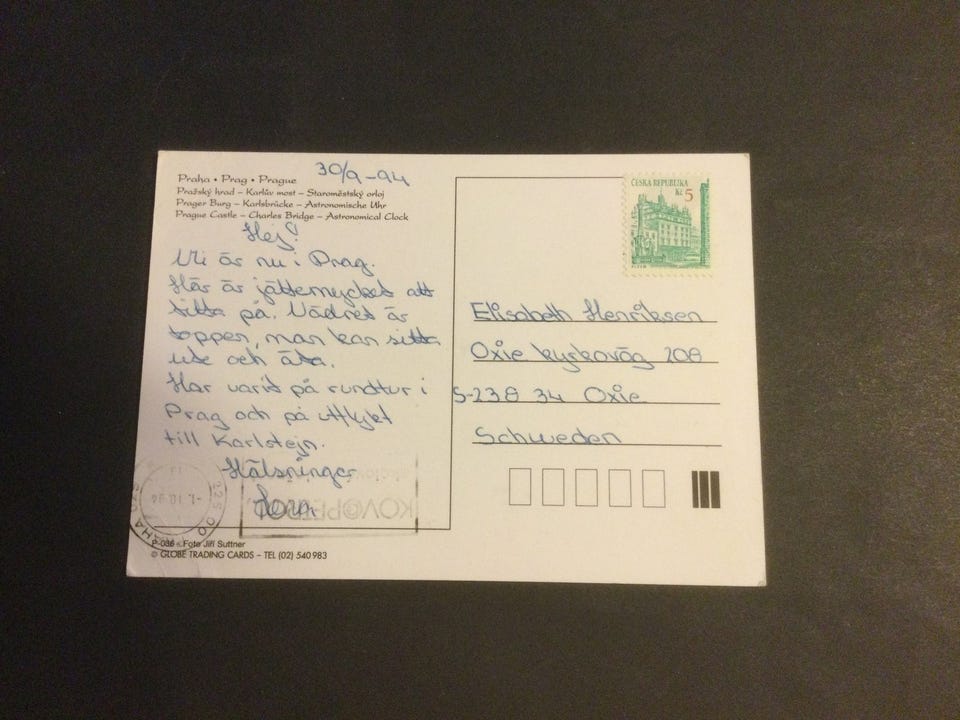 Praha • Prag • Prague
30/9-94
Pražský hrad – Karlův most – Staroměstský orloj
Prager Burg – Karlsbrücke – Astronomische Uhr
Prague Castle – Charles Bridge – Astronomical Clock
Hej!
Vi är nu i Prag.
Här är jättemycket att
titta på. Vädret är
toppen, man kan sitta
ute och äta.
Har varit på rundtur i
Prag och på utflykt
till Karlstejn.
Hälsningar
P-036 - Foto Jiří Suttner
© GLOBE TRADING CARDS – TEL (02) 540 983
ČESKÁ REPUBLIKA
Kč 5
PLZEŇ
Elisabeth Henriksen
Oxie kyrkoväg 208
S-238 34 Oxie
Schweden
-1.10.94